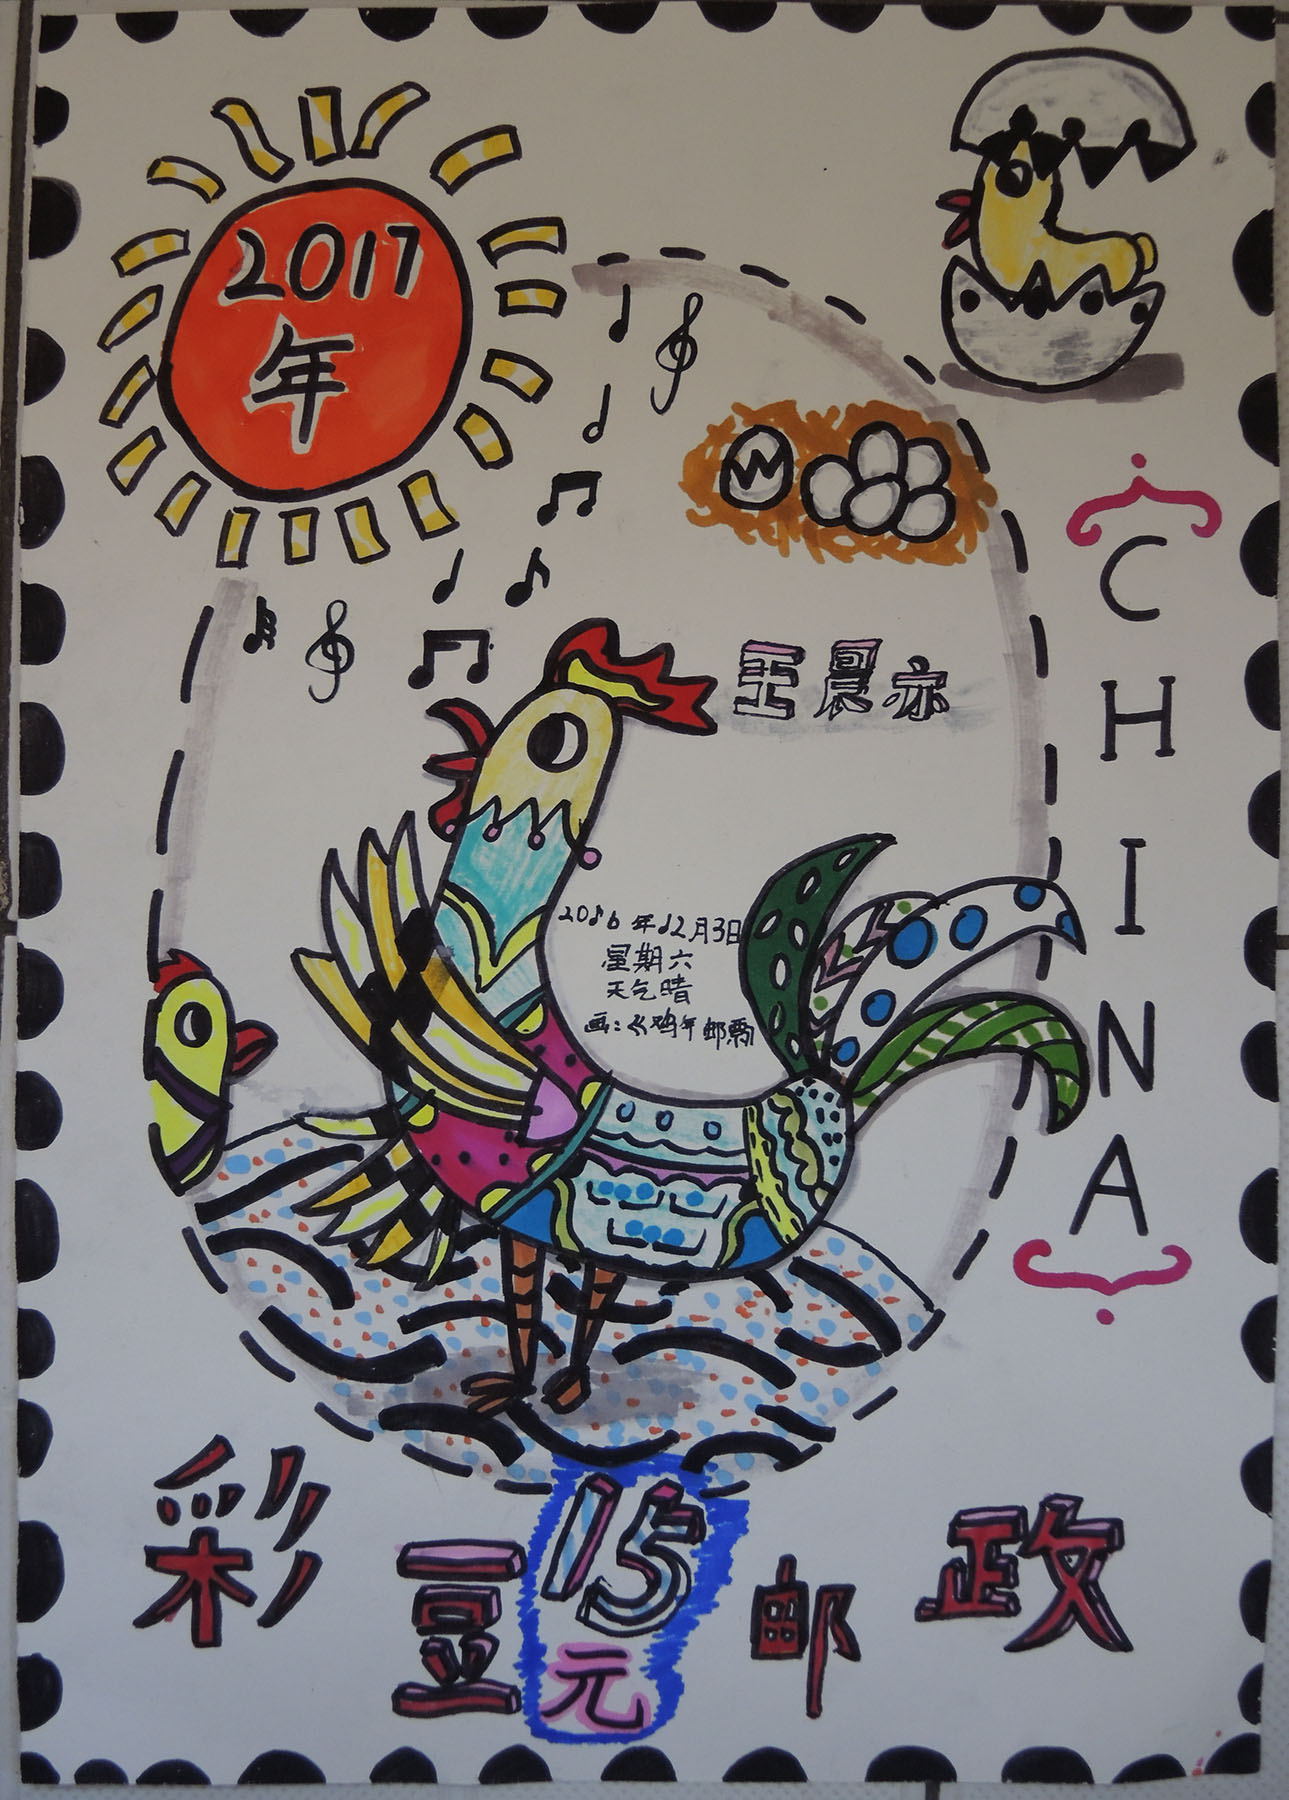 2017
年
王晨亦
CHINA
2016年12月3日
星期六
天气晴
画:《鸡年邮票
彩豆邮政
15
元